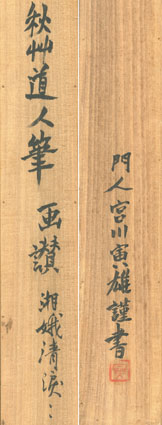 秋艸道人筆 画讃 湘娥清涙〻
門人宮川寅雄謹書